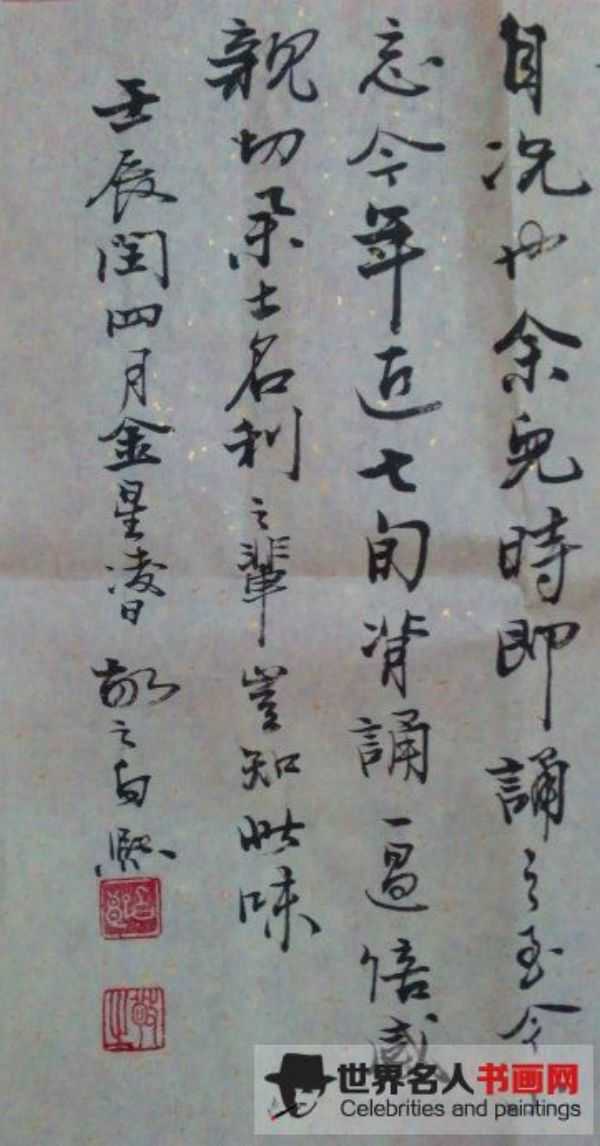 自況也余兒時即誦之至今
忘今年近七旬背誦一過倍感
親切士名利之輩豈知此味
壬辰閏四月金星凌日 敬之熙
世界名人书画网
Celebrities and paintings